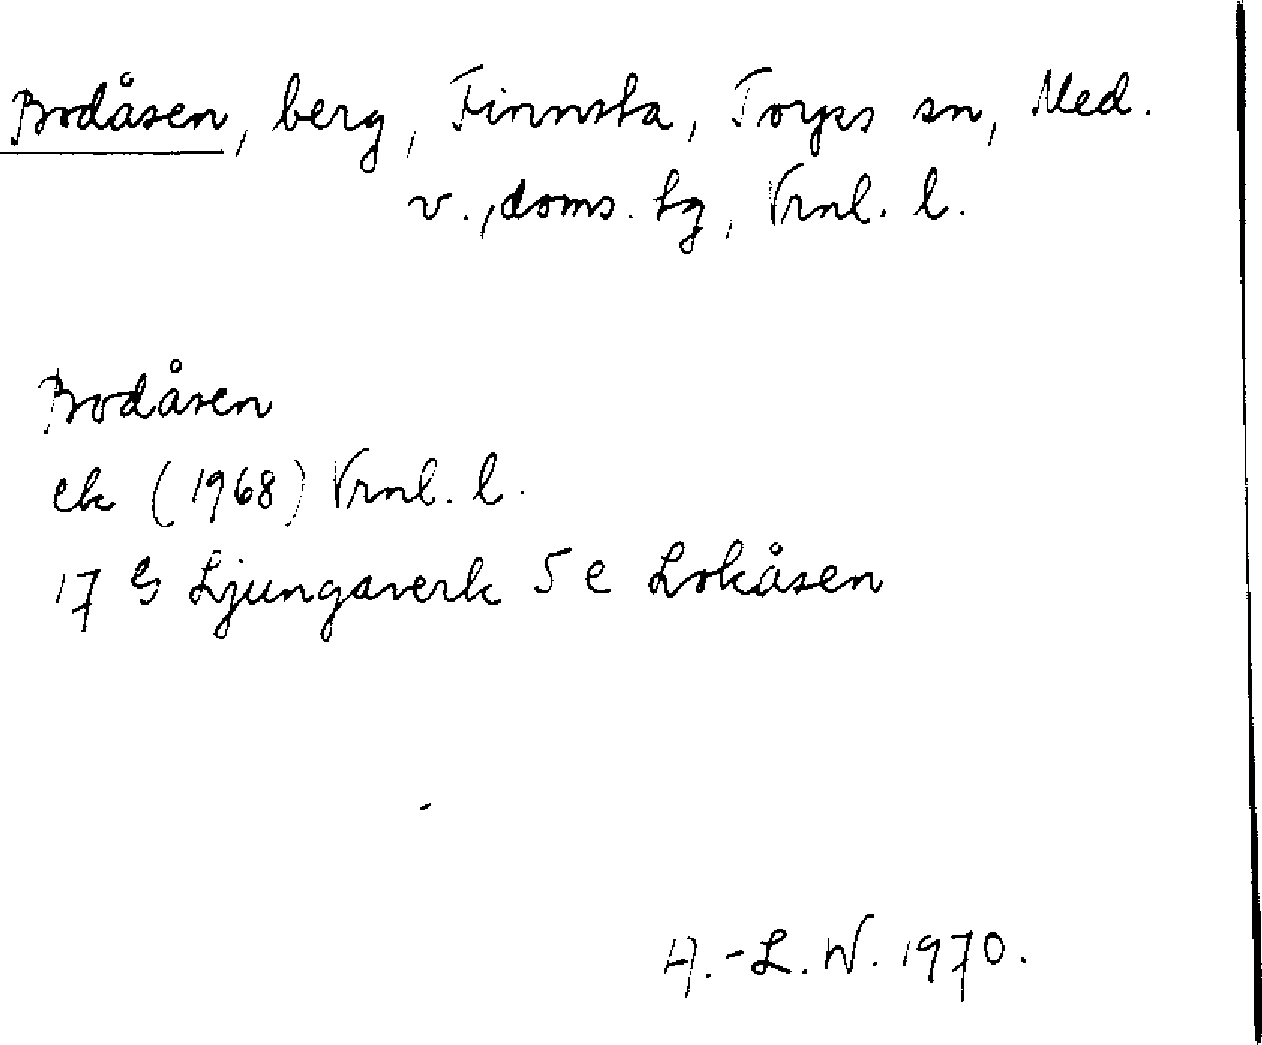 Bodåsen, berg, Finnsta, Torps sn, Med.
v., doms. hg, Vrnl. l.
Bodåsen
ek (1968) Vrnl. l.
17 G Ljungaverk 5 e Lokåsen
A.-L. W. 1970.